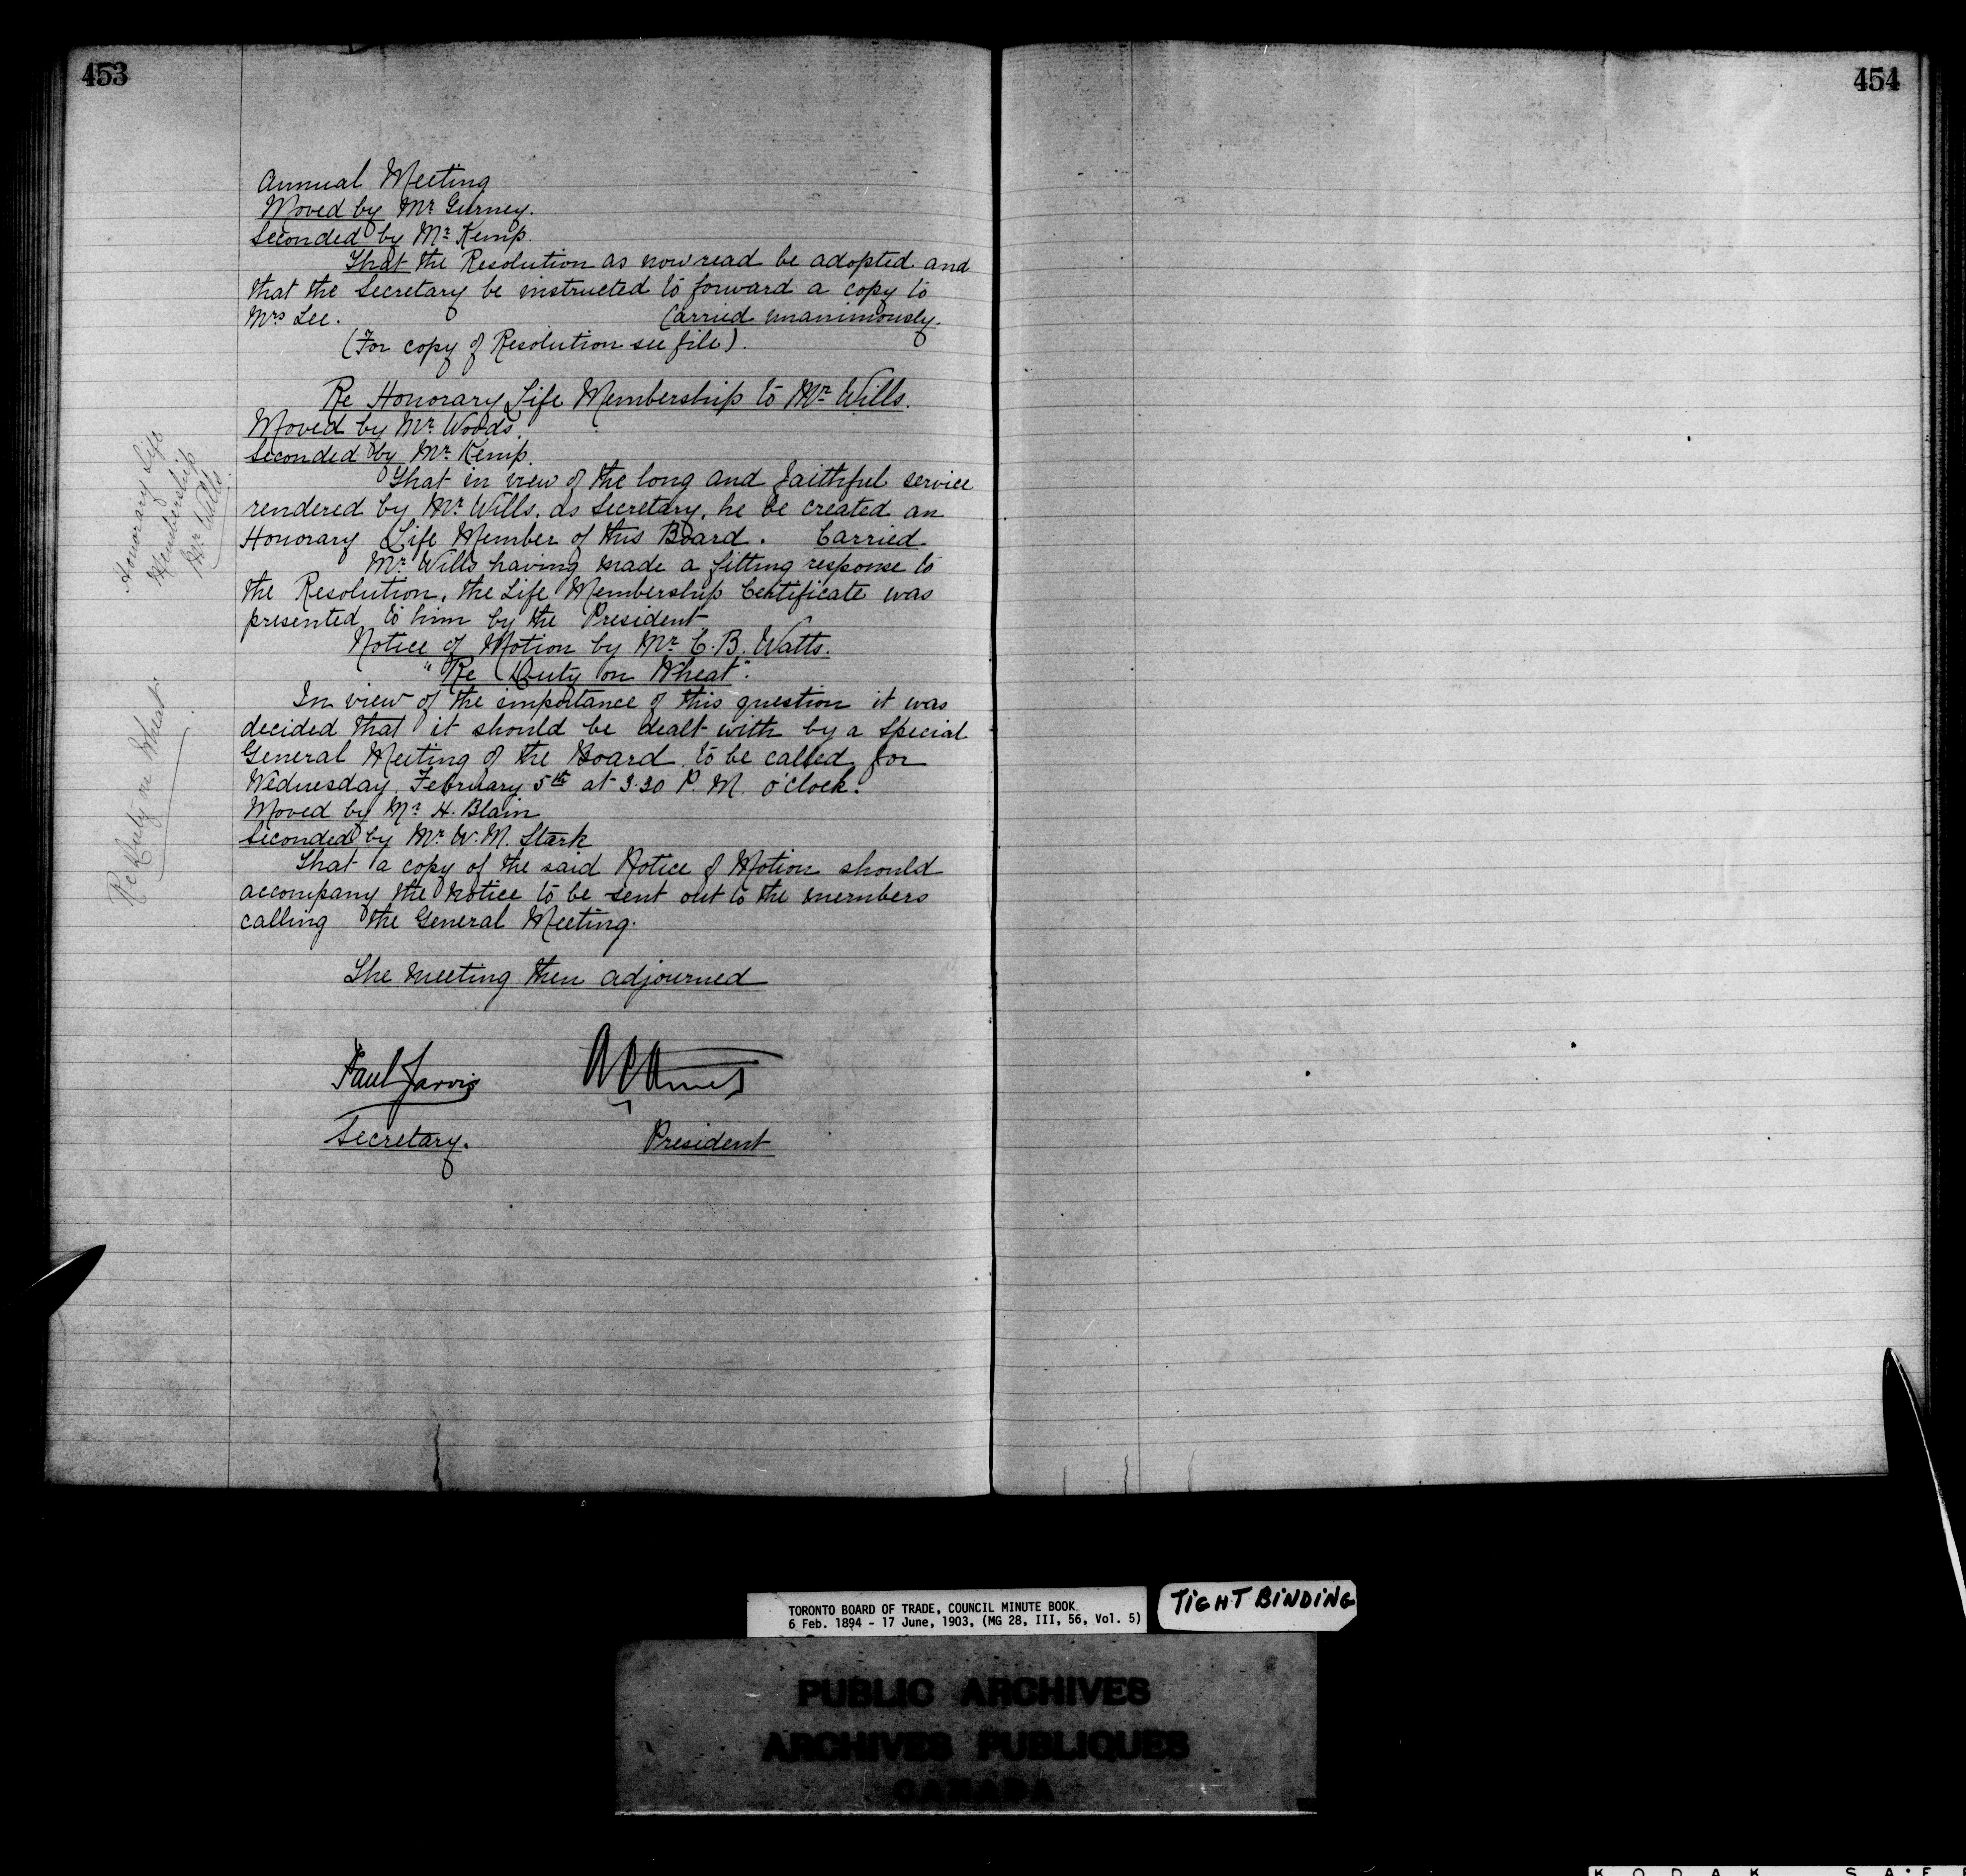 453
Annual Meeting
Moved by Mr Gurney.
Seconded by Mr Kemp.
That the Resolution as now read be adopted and
that the Secretary be instructed to forward a copy to
Mrs Lee. Carried unanimously.
(For copy of Resolution see file).
Re Honorary Life Membership to Mr Wills.
Moved by Mr Woods.
Seconded by Mr Kemp.
That in view of the long and faithful service
rendered by Mr Wills, as Secretary, he be created an
Honorary Life Member of this Board. Carried.
Mr Wills having made a fitting response to
the Resolution, the Life Membership Certificate was
presented to him by the President
Notice of Motion by Mr C. B. Watts.
"Re Duty on Wheat".
In view of the importance of this question it was
decided that it should be dealt with by a Special
General Meeting of the Board, to be called for
Wednesday, February 5th at 3.30 P. M. o'clock.
Moved by Mr H. Blain
Seconded by Mr W. M. Stark
That a copy of the said Notice of Motion should
accompany the notice to be sent out to the members
calling the General Meeting.
The meeting then adjourned
Paul Jarvis
Secretary.
President
Honorary Life
Membership
Mr Wills.
Re Duty on Wheat.
454
TORONTO BOARD OF TRADE, COUNCIL MINUTE BOOK
6 Feb. 1894 - 17 June, 1903, (MG 28, III, 56, Vol. 5)
TIGHT BINDING
PUBLIC ARCHIVES
ARCHIVES PUBLIQUES
CANADA
KODAK